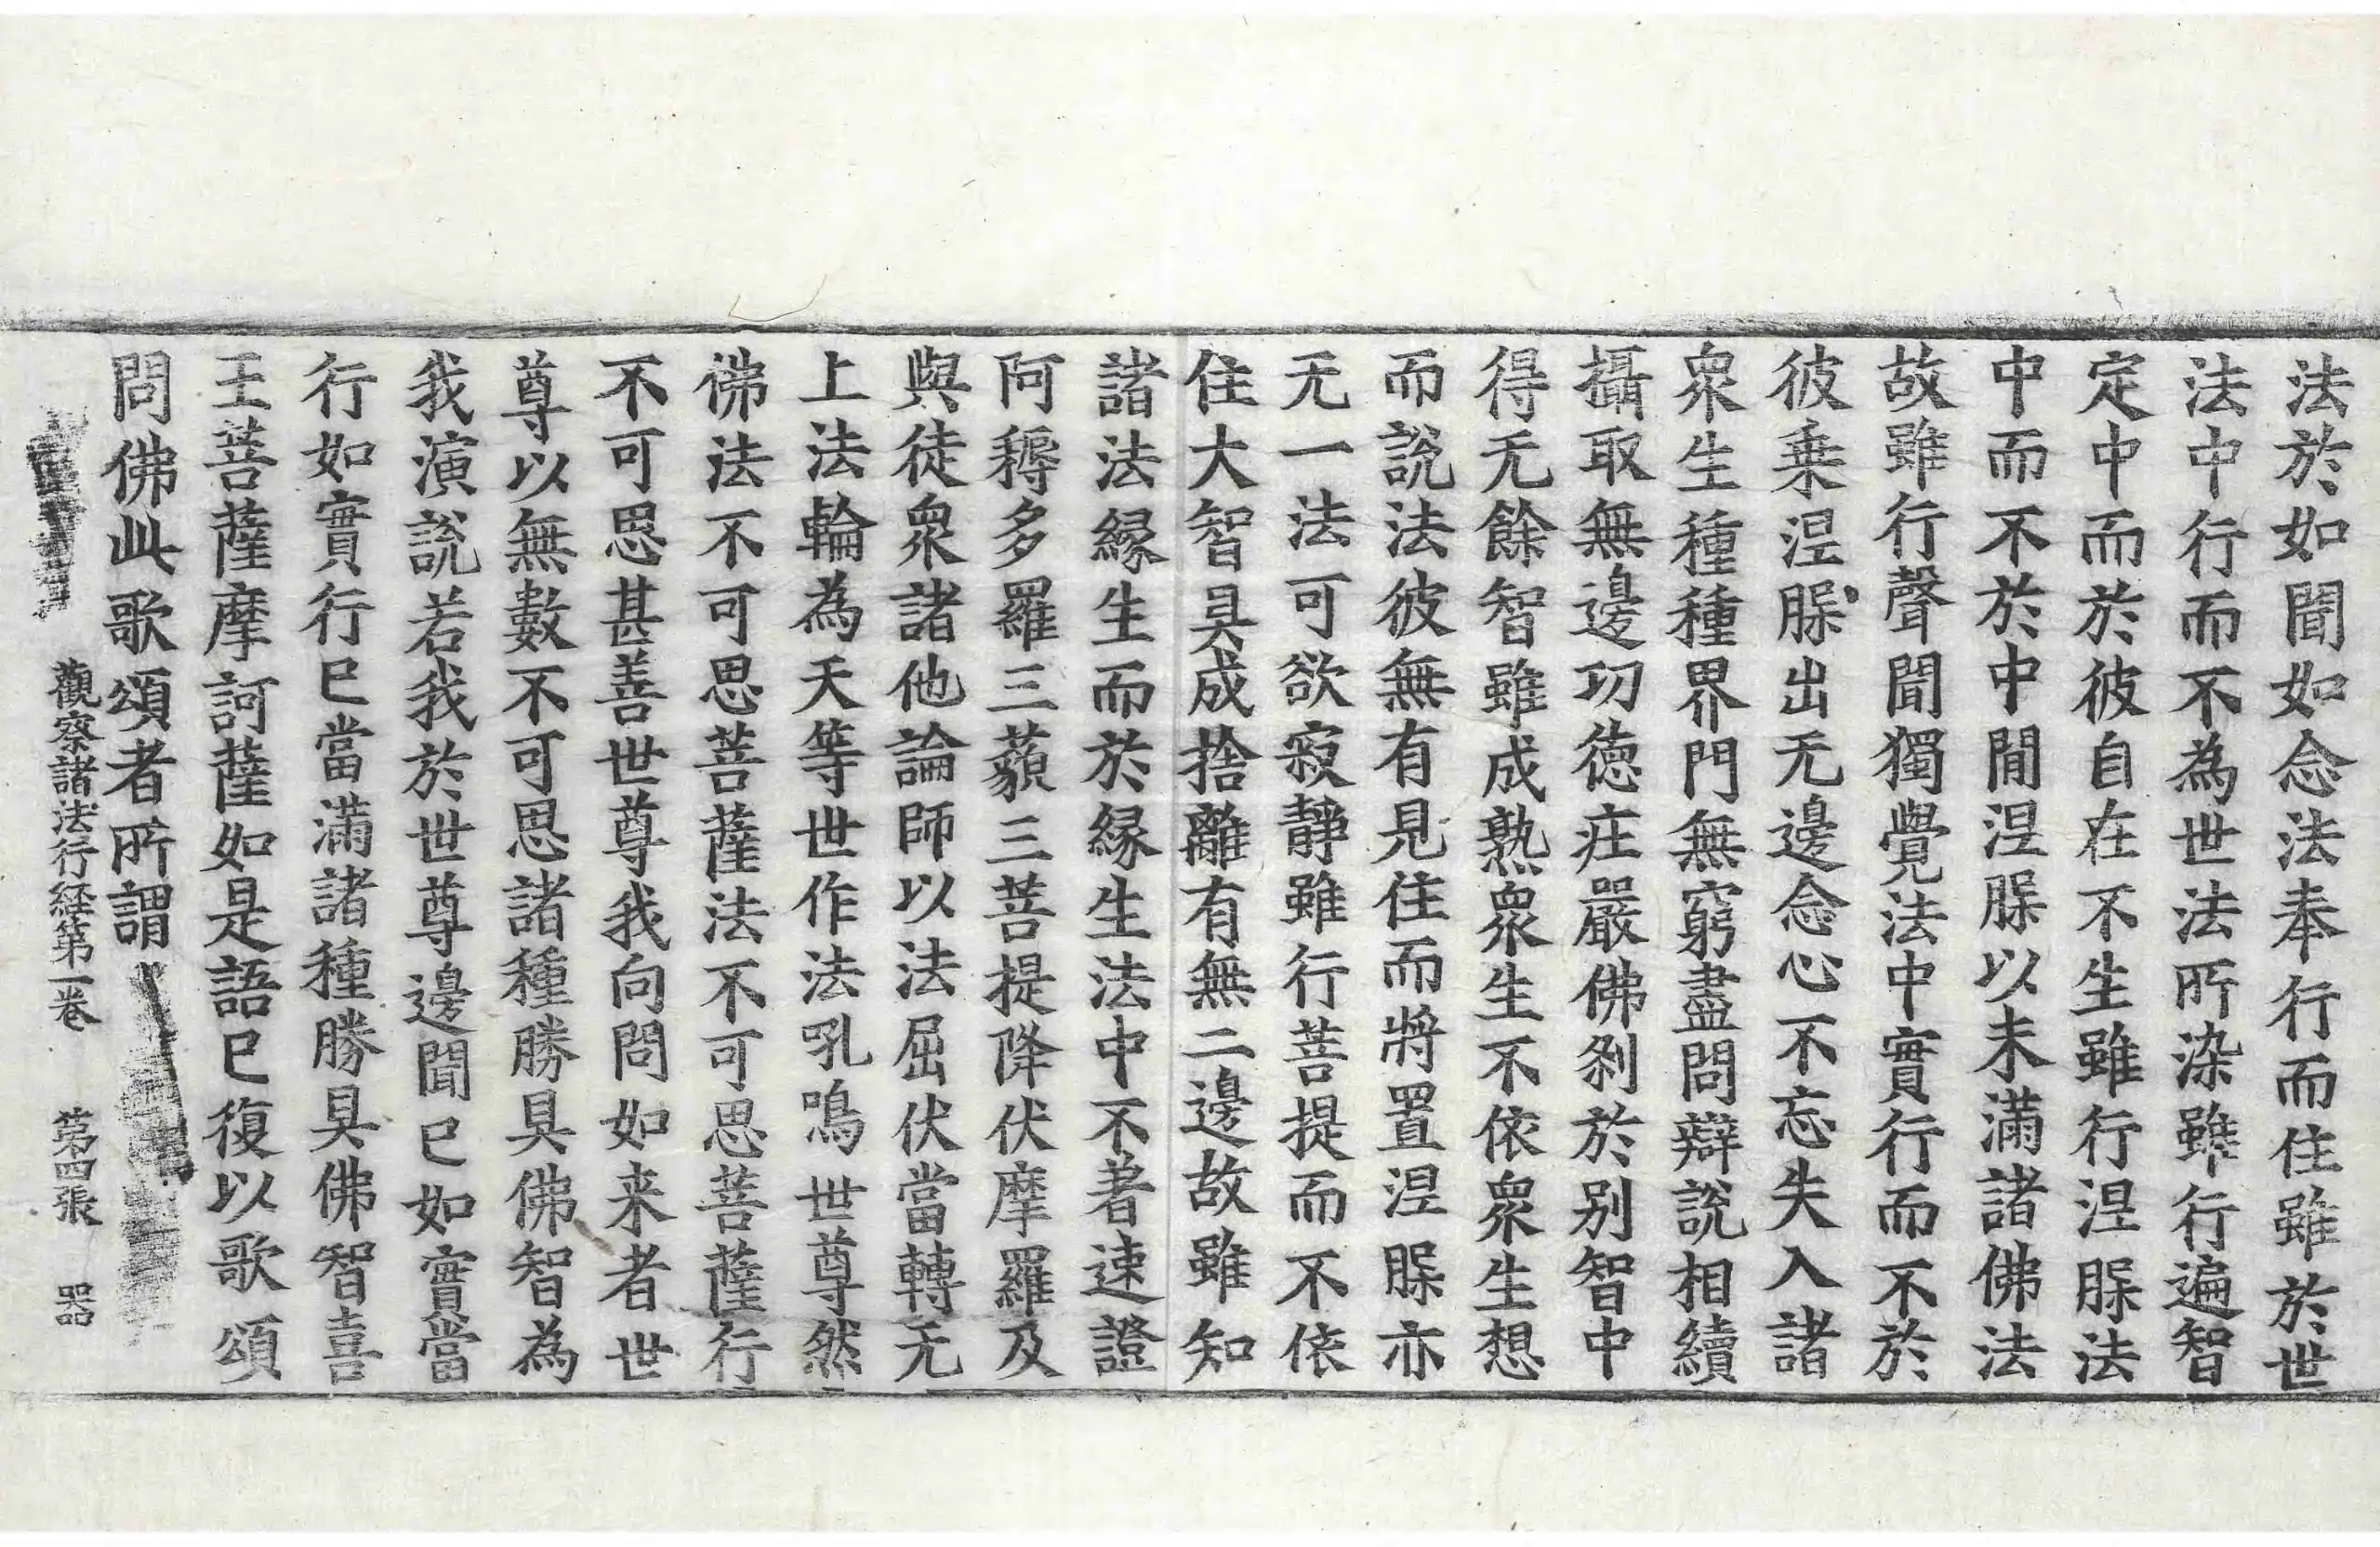 法於如聞如念法奉行而住雖於世
法中行而不為世法所染雖行遍智
定中而於彼自在不生雖行涅脲法
中而不於中間涅脲以未滿諸佛法
故雖行聲聞獨覺法中實行而不於
彼乗涅脲出无邊念心不忘失入諸
衆生種種界門無窮盡問辯說相續
攝取無邊切德庄嚴佛刹於别智中
得无餘智雖成熟衆生不依衆生想
而說法彼無有見住而將置涅脲亦
无一法可欲寂靜雖行菩提而不依
住大智具成捨離有無二邊故雖知
諸法緣生而於緣生法中不著速證
阿耨多羅三藐三菩提降伏摩羅及
與徒衆諸他論師以法屈伏當轉无
上法輪為天等世作法吼鳴世尊然
佛法不可思菩薩法不可思菩薩行
不可思甚善世尊我向問如来者世
尊以無數不可思諸種勝具佛智為
我演說若我於世尊邊聞已如實當
行如實行已當滿諸種勝具佛智喜
王菩薩摩訶薩如是語已復以歌頌
問佛此歌頌者所謂
觀察諸法行経第一卷 第四張 器